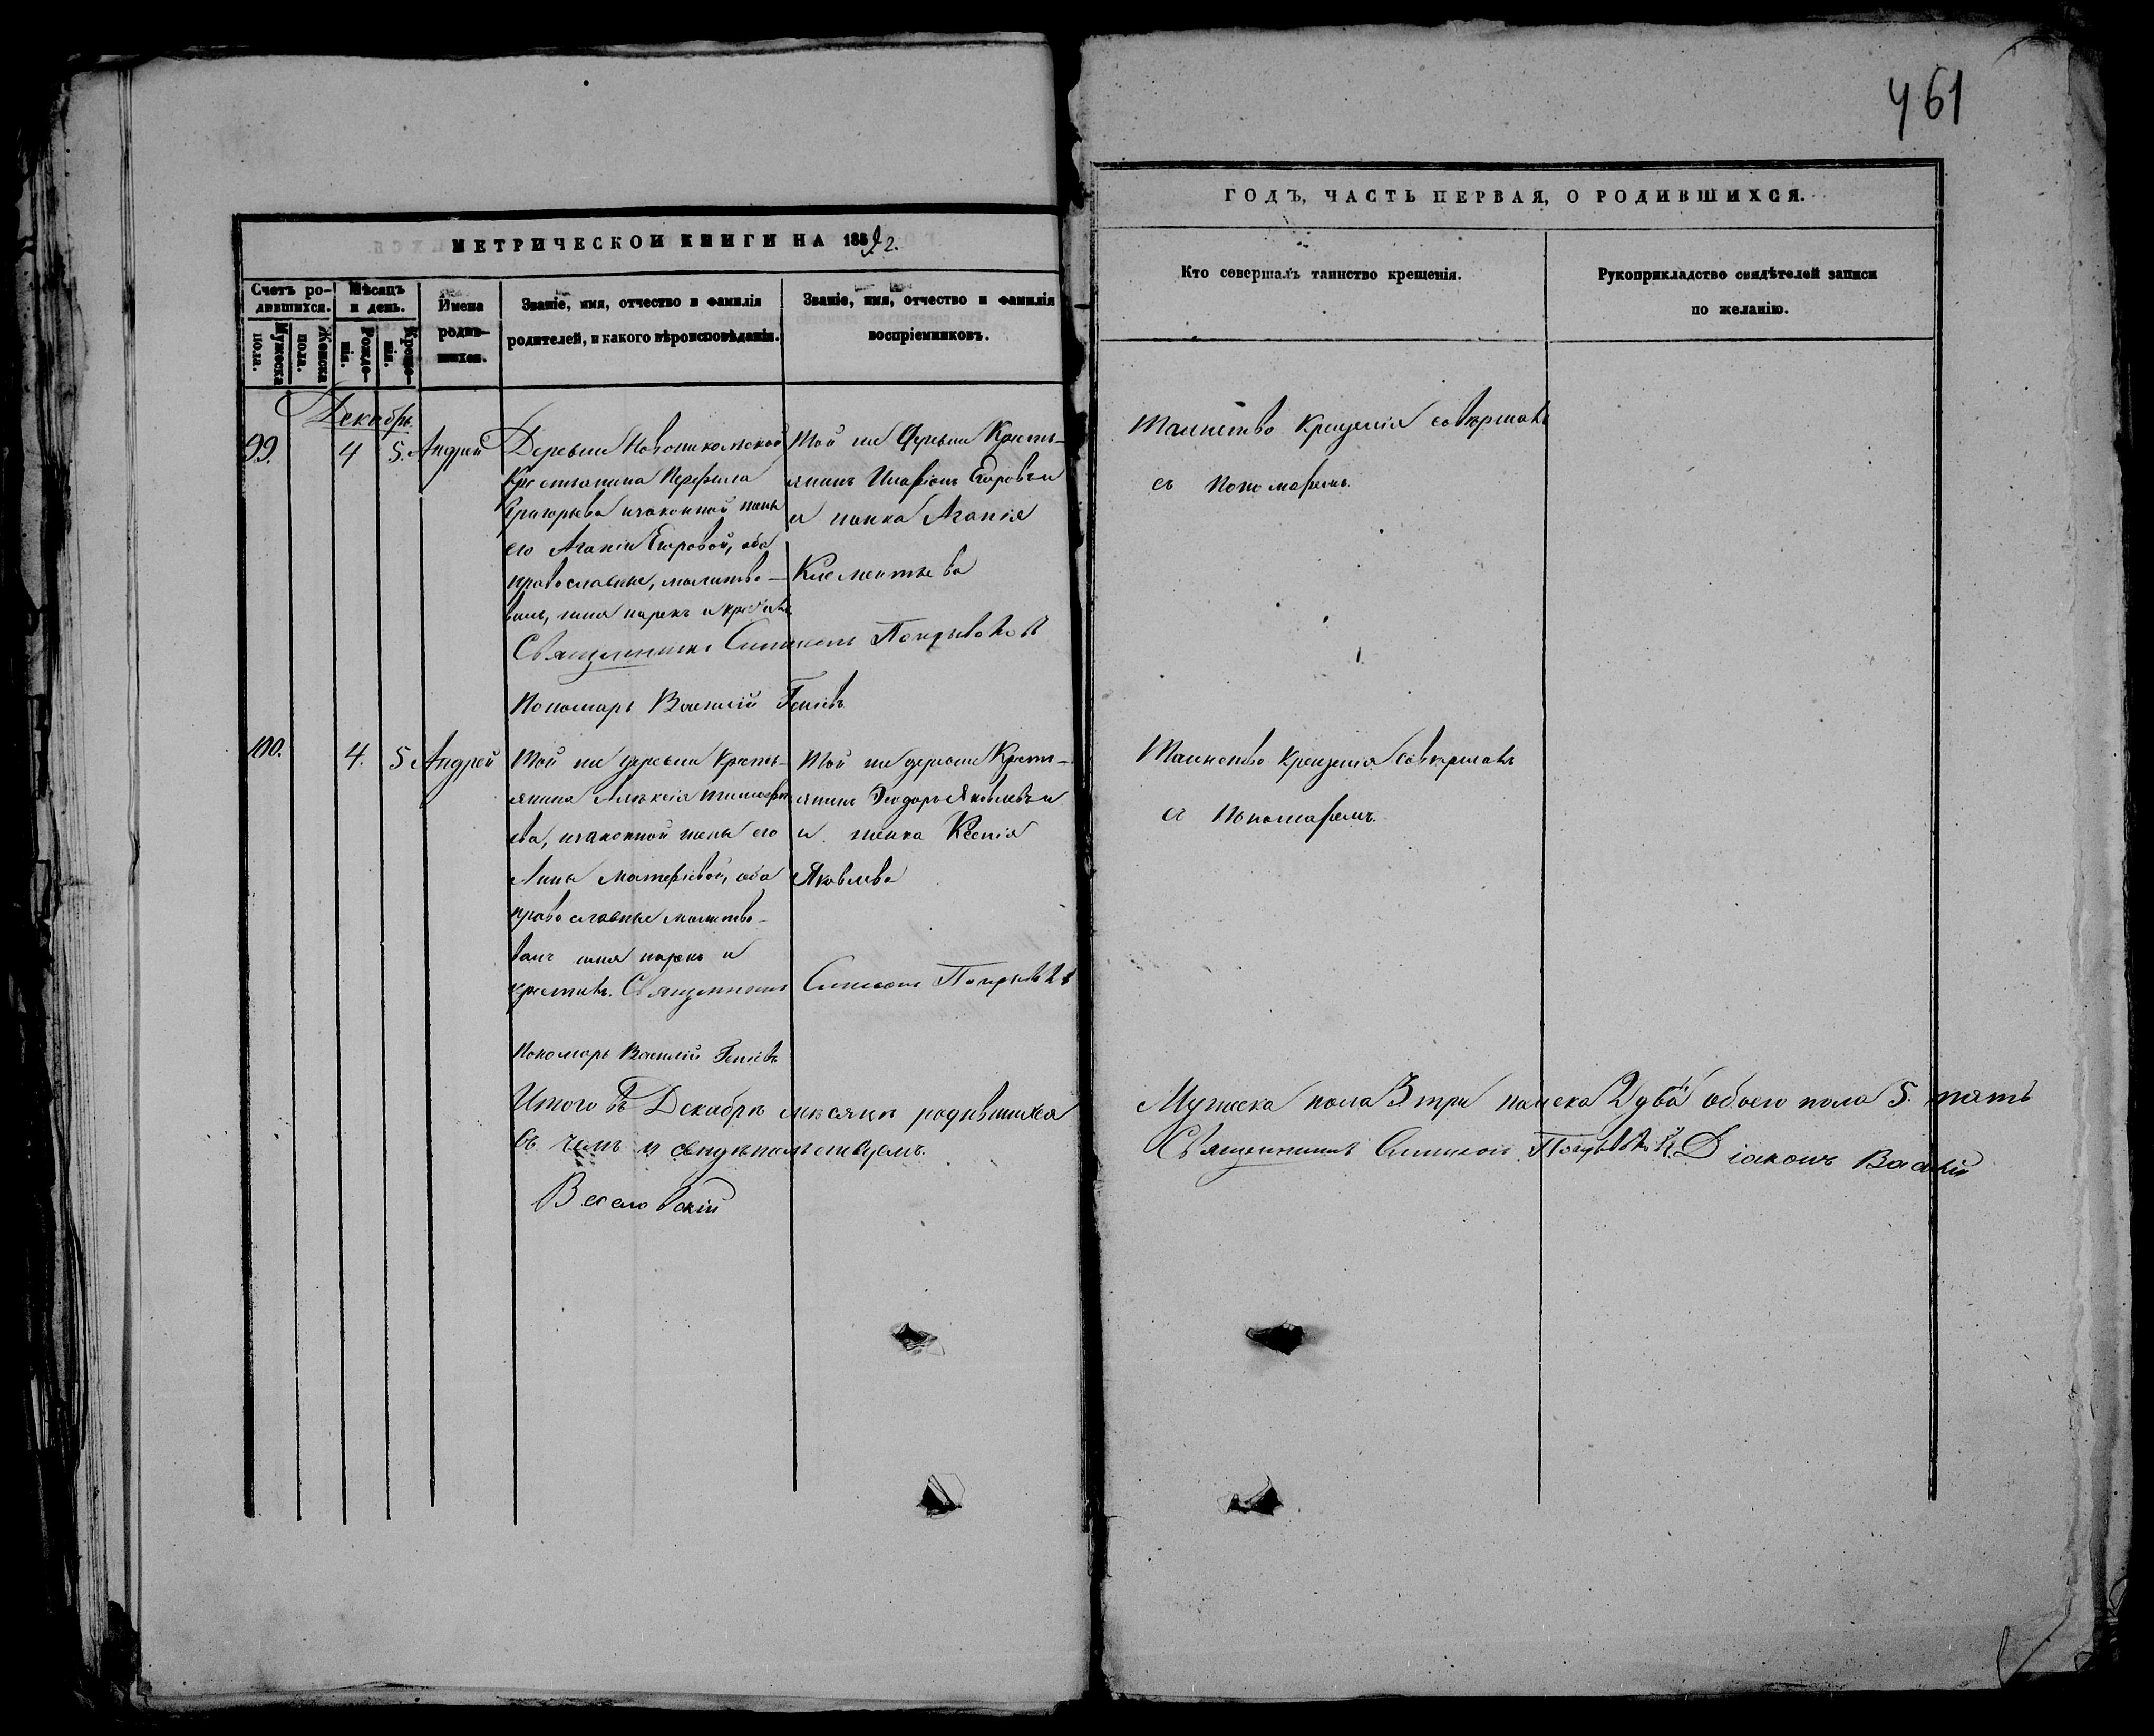 461
МЕТРИЧЕСКОЙ КНИГИ НА 1852.
ГОДЪ, ЧАСТЬ ПЕРВАЯ, О РОДИВШИХСЯ.
Счетъ ро-
дившихся.
Мужеска
пола.
Женска
пола.
Мѣсяцъ
и день.
Рожде-
нія.
Креще-
нія.
Имена
родив-
шихся.
Званіе, имя, отчество и фамилія
родителей, и какого вѣроисповѣданія.
Званіе, имя, отчество и фамилія
воспріемниковъ.
Кто совершалъ таинство крещенія.
Рукоприкладство свидѣтелей записи
по желанію.
Декабрь
99. 4 5. Андрей
Деревни
крестьянина
Григорьева и законной жены
его Агапіи Егоровой, оба
православные, молитво-
валъ, имя нарекъ и крестилъ
Священникъ Симеонъ
Пономарь Василій
Той же деревни Кресть-
янинъ Иларіонъ Егоровъ
и женка Агапія
Клементьева
Таинство Крещенія совершалъ
съ Пономаремъ.
100. 4. 5 Андрей
Той же деревни Кресть-
янина Алексія Тимофее-
ева, и законной жены его
Анны оба
православные молитво-
валъ имя нарекъ и
крестилъ. Священникъ Симеонъ
Пономарь Василій
Той же деревни Крест-
янинъ Ѳеодоръ Яковлевъ
и женка Ксенія
Яковлева
Таинство Крещенія совершалъ
съ Пономаремъ.
Итого въ Декабрѣ мѣсяцѣ родившихся
Мужеска пола 3 три женска 2 два обоего пола 5. пять
въ чемъ и свидѣтельствуемъ.
Священникъ Симеонъ Діаконъ Василій
Веселовскій